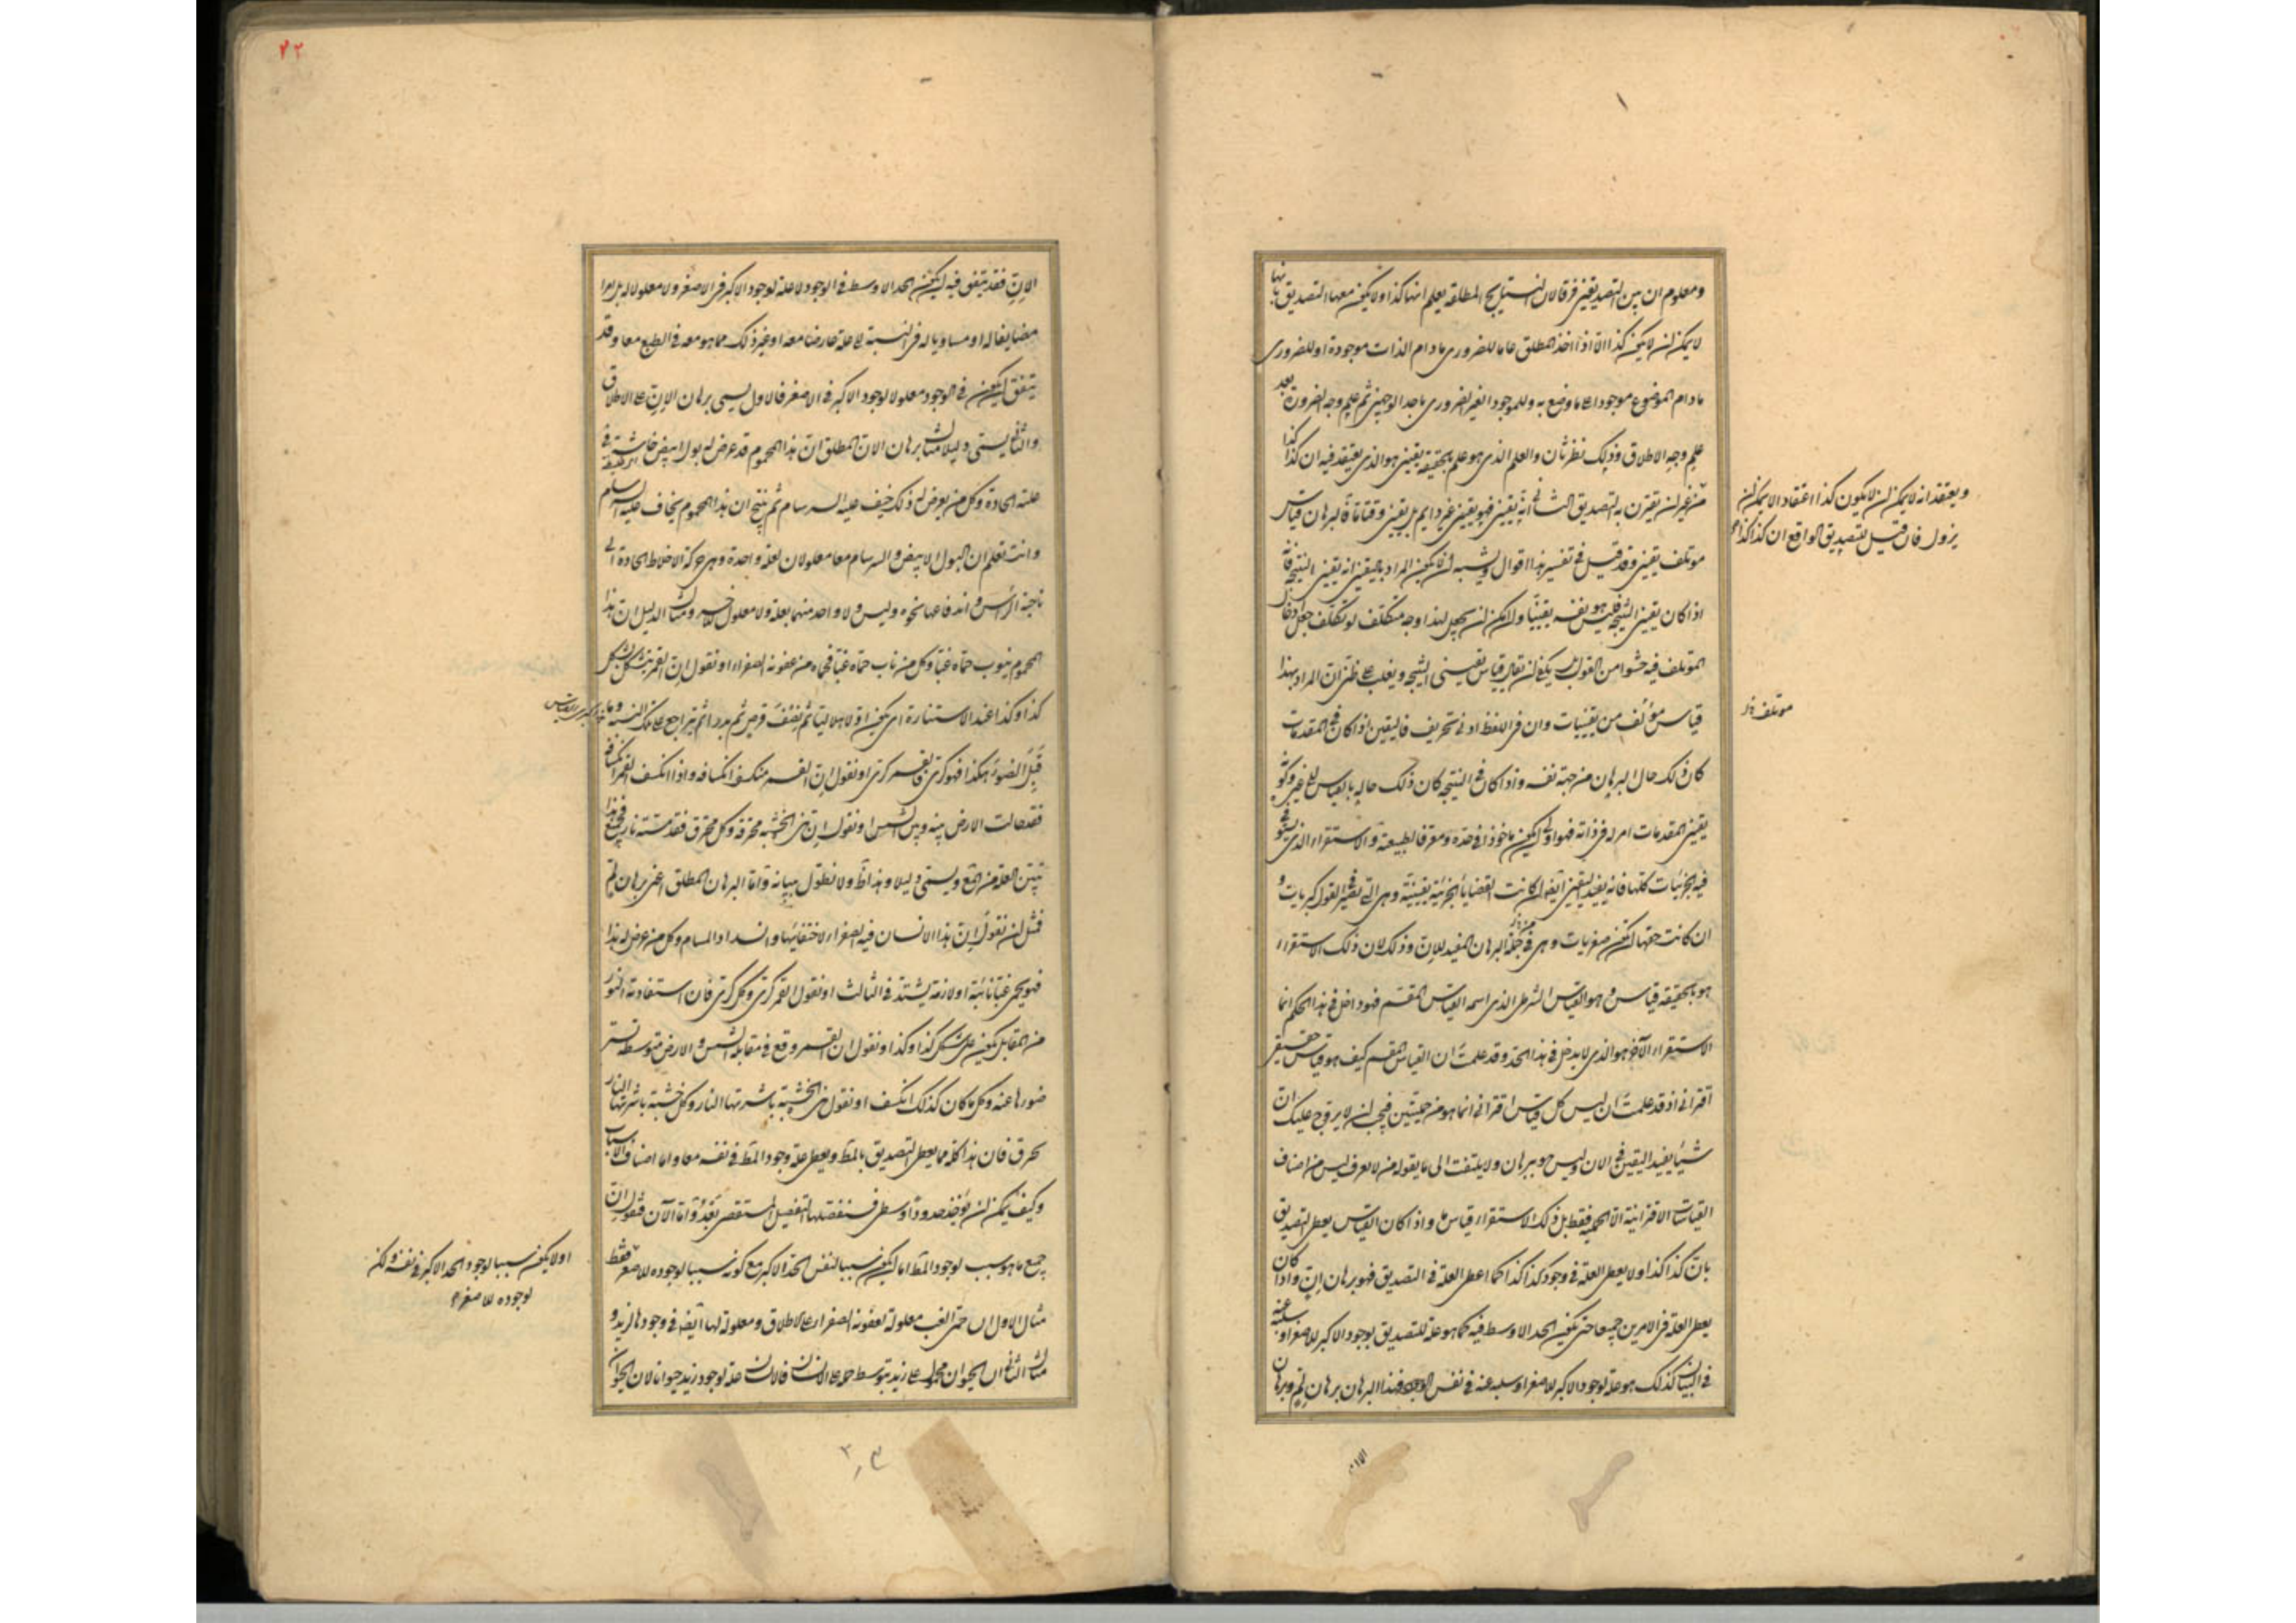 ومعلوم ان بين التصديقين فرقا لان النتايج المطلقة يعلم انها كذا ولا يكون معها التصديق بانها
لا يمكن ان لا يكون كذا الا اذا اخذ المطلق عاما للضرورى ما دام الذات موجودة او للضرورى
ما دام الموضوع موجودا على ما وضع به وللموجود الغير الضرورى باحد الوجهين ثم علم وجه الضرورة بعد
علم وجه الاطلاق وذلك نظر ثان والعلم الذى هو علم بالحقيقة يقينى هو الذى يعتقد فيه ان كذا كذا
ويعتقد انه لا يمكن ان لا يكون كذا اعتقادا لا يمكن ان
يزول فان قيل للتصديق الواقع ان كذا كذا
من غير ان يقترن به التصديق الثانى انه يقينى فهو يقينى غير دايم بل يقينى وقتا ما فالبرهان قياس
موتلف يقينى وقد قيل فى تفسير هذا اقوال ويشبه ان لا يكون المراد باليقينى انه يقينى النتيجة فانه
اذا كان يقينى النتيجة فليس هو نفسه يقينيا وان امكن ان يجعل لهذا وجه متكلف لو تكلف جعل ادخال
الموتلف فيه حشوا من القول بل يكفى ان يقال قياس يقينى النتيجة ويغلب على ظنى ان المراد بهذا
قياس مؤلف من يقينيات وان فى اللفظ ادنى تحريف فاليقين اذا كان فى المقدمات
موتلف
كان ذلك حال البرهان من جهة نفسه واذا كان فى النتيجة كان ذلك حاله بالقياس الى غيره وكونه
يقينى المقدمات امر له فى ذاته فهو اولى ان يكون ماخوذا فى حده ومعرفا لطبيعته والاستقراء الذى يستوفى
فيه الجزئيات كلها فانه يفيد اليقين ايضا ان كانت القضايا الجزئية يقينية وهى التى تصير فى القول كبريات و
ان كانت حقها ان تكون صغريات وهى فى جملة البرهان المفيد للان وذلك لان ذلك الاستقراء
هو بالحقيقة قياس وهو القياس الشرطى الذى اسمه القياس المقسم فهو داخل فى هذا الحكم انما
الاستقراء الآخر هو الذى لا يدخل فى هذا الحد وقد علمت ان القياس المقسم كيف هو قياس حقيقى
اقترانى اذ قد علمت ان ليس كل قياس اقترانى انما هو من حمليتين فيجب ان لا يروج عليك ان
شيئا يفيد اليقين فى الان وليس هو ببرهان ولا يلتفت الى ما يقوله من لا يعرف ليس من اصناف
القياسات الاقترانية الا الحملية فقط بل ذلك الاستقراء قياس ما واذا كان القياس يعطى التصديق
بان كذا كذا ولا يعطى العلة فى وجود كذا كذا كما اعطى العلة فى التصديق فهو برهان ان واذا كان
يعطى العلة فى الامرين جميعا حتى يكون الحد الاوسط فيه كما هو علة للتصديق بوجود الاكبر للاصغر او سلبه عنه
فى البيان كذلك هو علة لوجود الاكبر للاصغر او سلبه عنه فى نفس الوجود فهذا البرهان برهان لم وبرهان
الان
٢٢
الان فقد يتفق فيه ان يكون الحد الاوسط فى الوجود لا علة لوجود الاكبر فى الاصغر ولا معلولا له بل امرا
مضايفا له او مساويا له فى النسبة الى علة عارضا معه او غير ذلك مما هو معه فى الطبع معا وقد
يتفق ان يكون فى الوجود معلولا لوجود الاكبر فى الاصغر فالاول يسمى برهان الان على الاطلاق
والثانى يسمى دليلا مثال برهان الان المطلق ان هذا المحموم قد عرض له بول ابيض خاثر رقيق فى
علته الحادة وكل من يعرض له ذلك خيف عليه السرسام ثم ينتج ان هذا المحموم يخاف عليه السرسام
وانت تعلم ان البول الابيض والسرسام معا معلولان لعلة واحدة وهى حركة الاخلاط الحادة الى
ناحية الراس واندفاعها نحوه وليس ولا واحد منهما بعلة ولا معلول للآخر ومثال الدليل ان هذا
المحموم ينوب حماه غبا وكل من ناب حماه غبا فحماه من عفونة الصفراء او نقول ان القمر يتشكل بشكل
كذا وكذا عند الاستنارة اى يكون اولا هلاليا ثم نصف قرص ثم بدرا ثم يتراجع على تلك النسبة وما
قبل الضوء هكذا فهو كرى فالقمر كرى او نقول ان القمر منكسف انكسافه واذا انكسف القمر انكسافه
فقد حالت الارض بينه وبين الشمس او نقول ان هذى الخشبة محترقة وكل محترق فقد مسته نار فجميع هذا
تبين العلة من المع ويسمى دليلا وهذا ظ ولا نطول ببيانه واما البرهان المطلق اعنى برهان لم
فمثل ان نقول ان هذا الانسان فيه الصفراء لاختقانها وانسداد المسام وكل من عرض له هذا
فهو يحمى غبا نائبة او لازمة يشتد فى الثالث او نقول القمر كرى وكل كرى فان استفادته النور
من المقابل يكون على شكل كذا وكذا او نقول ان القمر وقع فى مقابلة الشمس والارض متوسطة تستر
ضوءها عنه وكل ما كان كذلك انكسف او نقول هذى الخشبة باشرتها النار وكل خشبة باشرتها النار
تحرق فان هذا كله مما يعطى التصديق بالمط ويعطى علة وجود المط فى نفسه معا واما اصناف الاسباب
وكيف يمكن ان تؤخذ حدودا وسطى فسنفصلها التفصيل المستقصى بعد واما الآن فنقول ان
جميع ما هو سبب لوجود المط اما ان يكون سببا لنفس الحد الاكبر مع كونه سببا لوجوده للاصغر فقط
او لا يكون سببا لوجود الحد الاكبر فى نفسه ولكن
لوجوده للاصغر
مثال الاول ان حمى الغب معلولة لعفونة الصفراء على الاطلاق ومعلولة لها ايضا فى وجودها لزيد و
مثال الثانى ان الحيوان محمول على زيد بتوسط حمله على الانسان فالانسان علة لوجود زيد حيوانا لان الحيوان